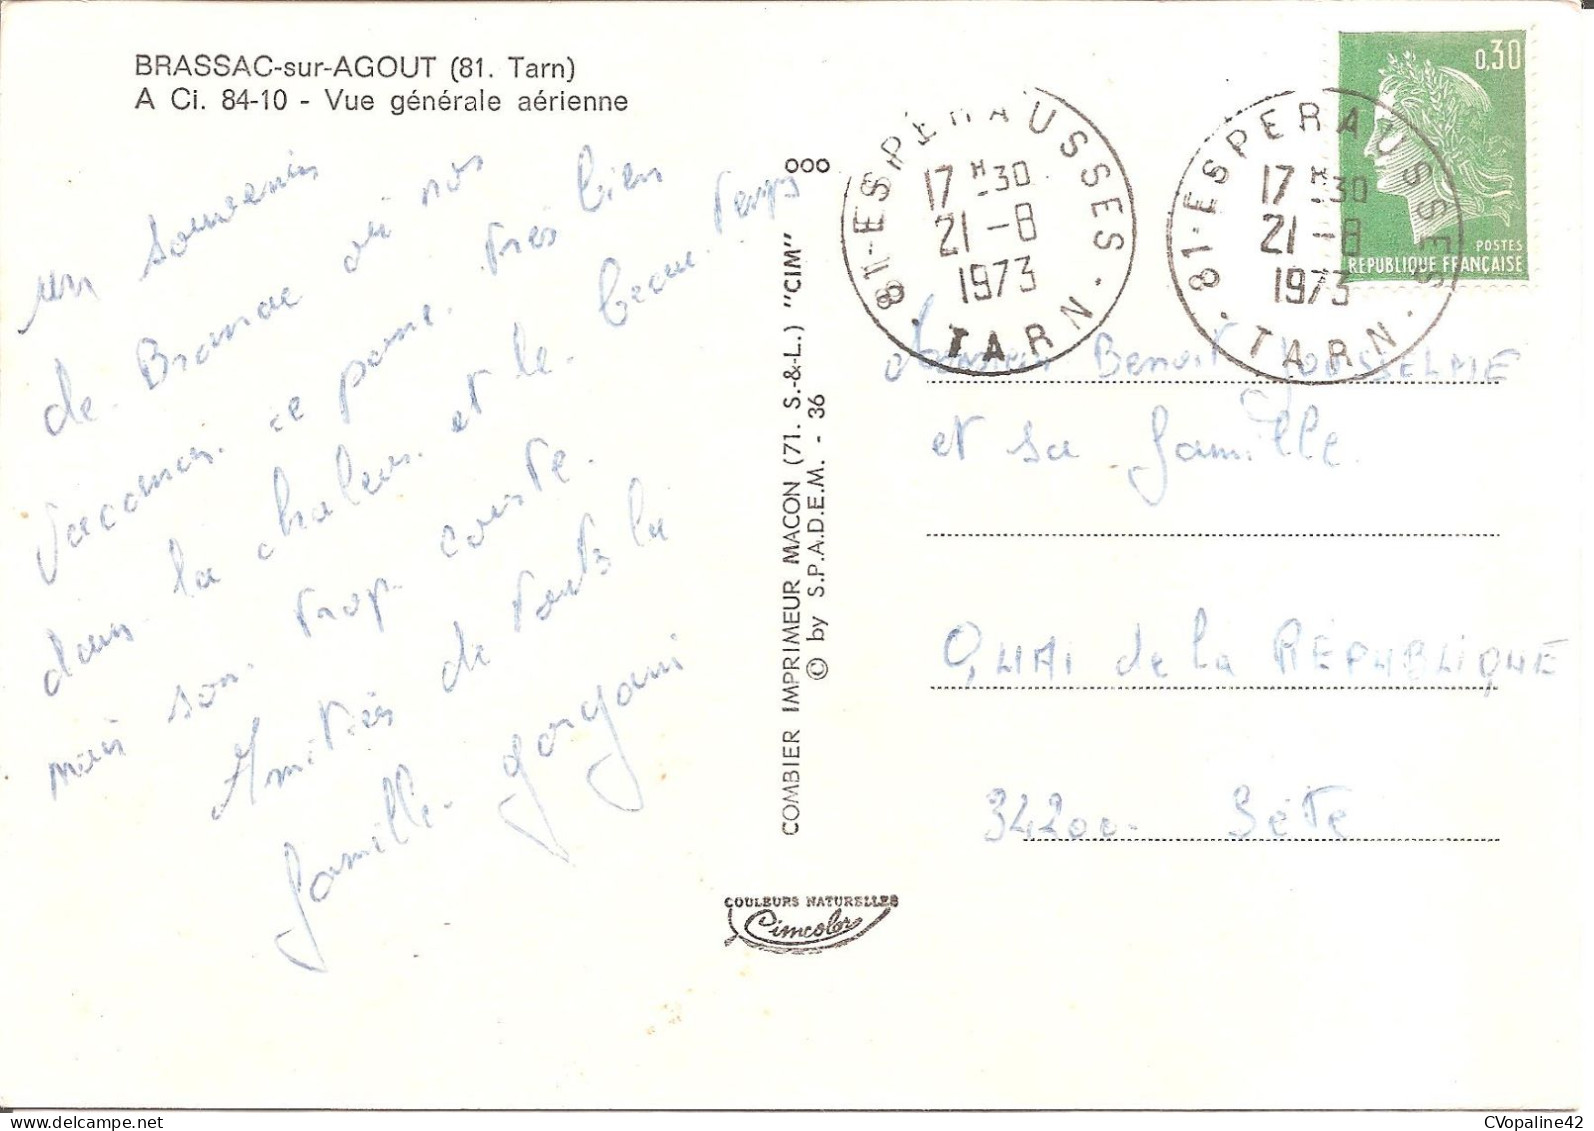 BRASSAC-sur-AGOUT (81. Tarn)
A Ci. 84-10 - Vue générale aérienne
un souvenir
de Brassac où nos
vacances se passe. très bien
dans la chaleur et le beau temps
mais son trop courte.
Amitiés de toute la
famille
COMBIER IMPRIMEUR MACON (71. S.-&-L.) "CIM"
© by S.P.A.D.E.M. - 36
ooo
COULEURS NATURELLES
Cimcolor
81-ESPERAUSSES
17 H 30
21-8
1973
· TARN ·
81-ESPERAUSSES
17 H 30
21-8
1973
· TARN ·
0,30
POSTES
REPUBLIQUE FRANÇAISE
Monsieur Benoit
et sa famille.
QUAI de la RÉPUBLIQUE
34200. Sète
CVopaline42